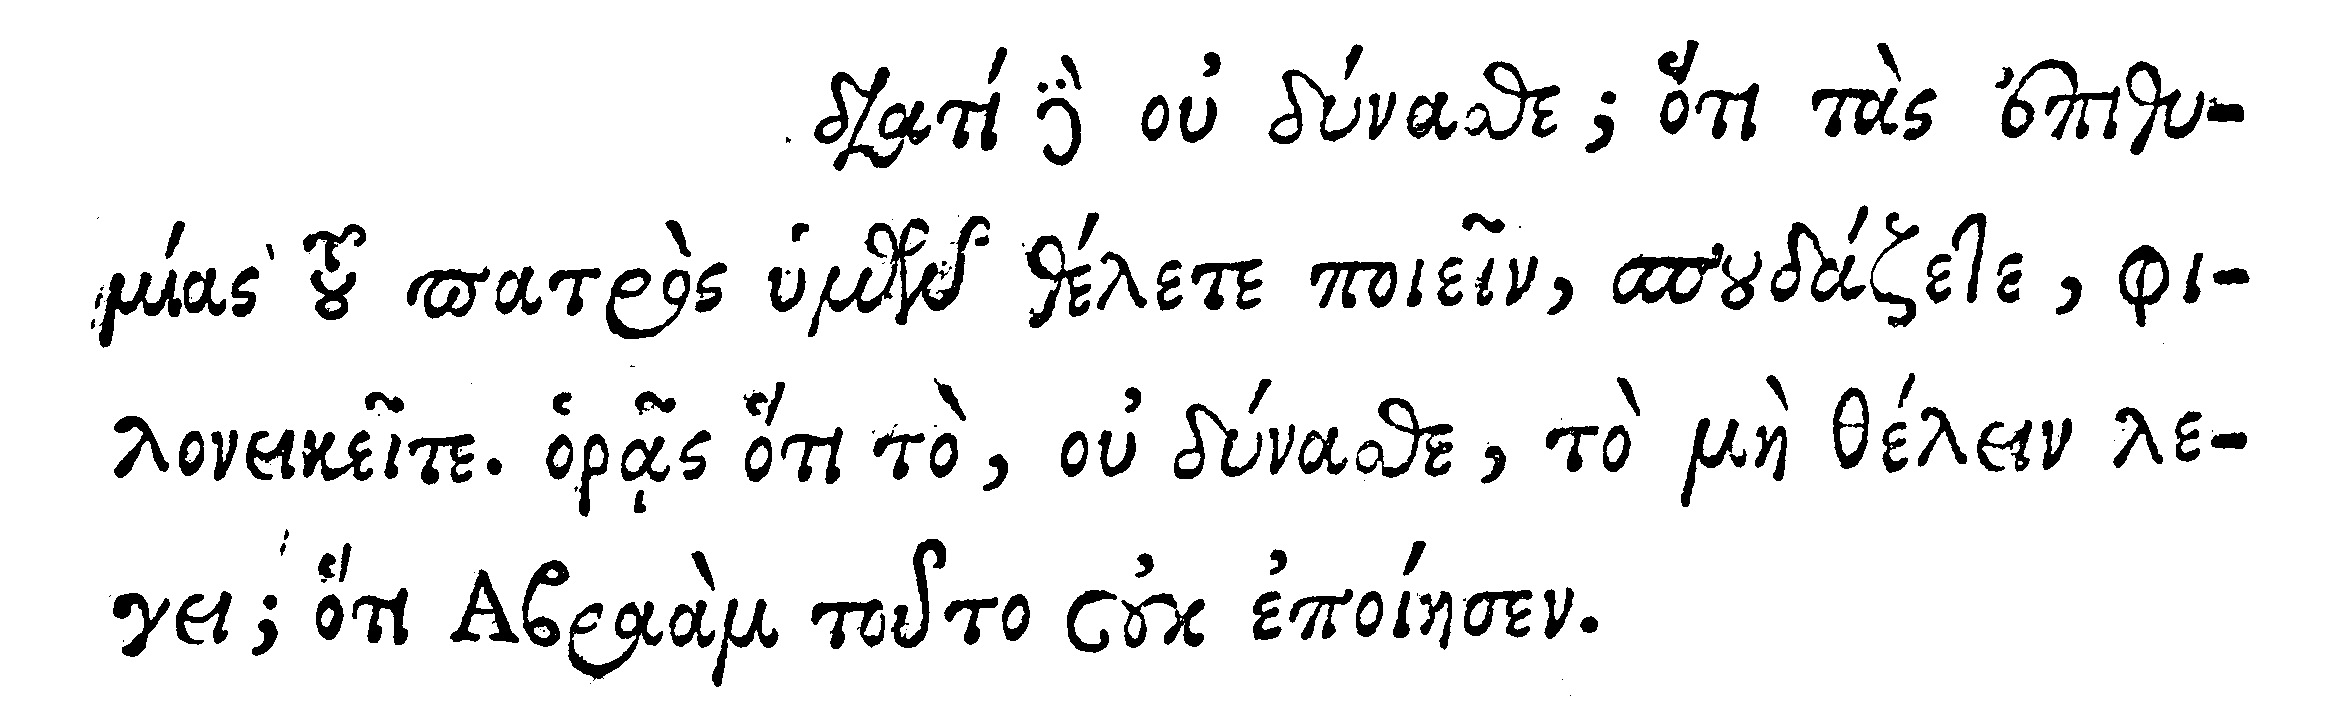 διατί γὰρ οὐ δύνασθε; ὅτι τὰς ἐπιθυ-
μίας τοῦ πατρὸς ὑμῶν θέλετε ποιεῖν, σπουδάζετε, φι-
λονεικεῖτε. ὁρᾷς ὅτι τὸ, οὐ δύνασθε, τὸ μὴ θέλειν λε-
γει; ὅτι Αβραὰμ τοῦτο οὐκ ἐποίησεν.